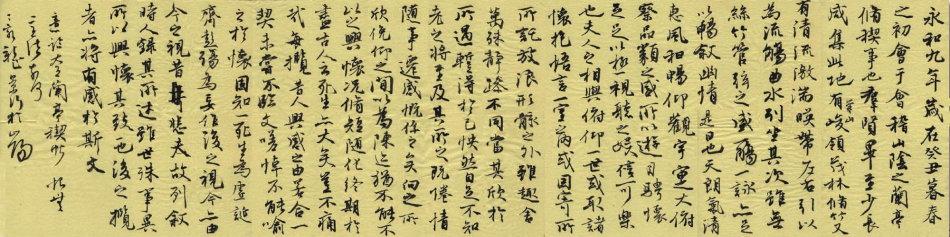 永和九年歲在癸丑暮春
之初會于會稽山陰之蘭亭
脩禊事也羣賢畢至少長
咸集此地有崇山峻領茂林脩竹又
有清流激湍暎帶左右引以
為流觴曲水列坐其次雖無
絲竹管弦之盛一觴一詠亦足
以暢敘幽情是日也天朗氣清
惠風和暢仰觀宇宙之大俯
察品類之盛所以遊目騁懷
足以極視聽之娛信可樂
也夫人之相與俯仰一世或取諸
懷抱悟言一室之內或因寄所
所託放浪形骸之外雖趣舍
萬殊靜躁不同當其欣於
所遇暫得於己快然自足不知
老之將至及其所之既倦情
隨事遷感慨係之矣向之所
欣俛仰之間以為陳迹猶不能不
以之興懷況脩短隨化終期於
盡古人云死生亦大矣豈不痛
哉每攬昔人興感之由若合一
契未嘗不臨文嗟悼不能喻
之於懷固知一死生為虛誕
齊彭殤為妄作後之視今亦由
今之視昔悲夫故列敘
時人錄其所述雖世殊事異
所以興懷其致一也後之攬
者亦將有感於斯文
意臨大王蘭亭禊帖